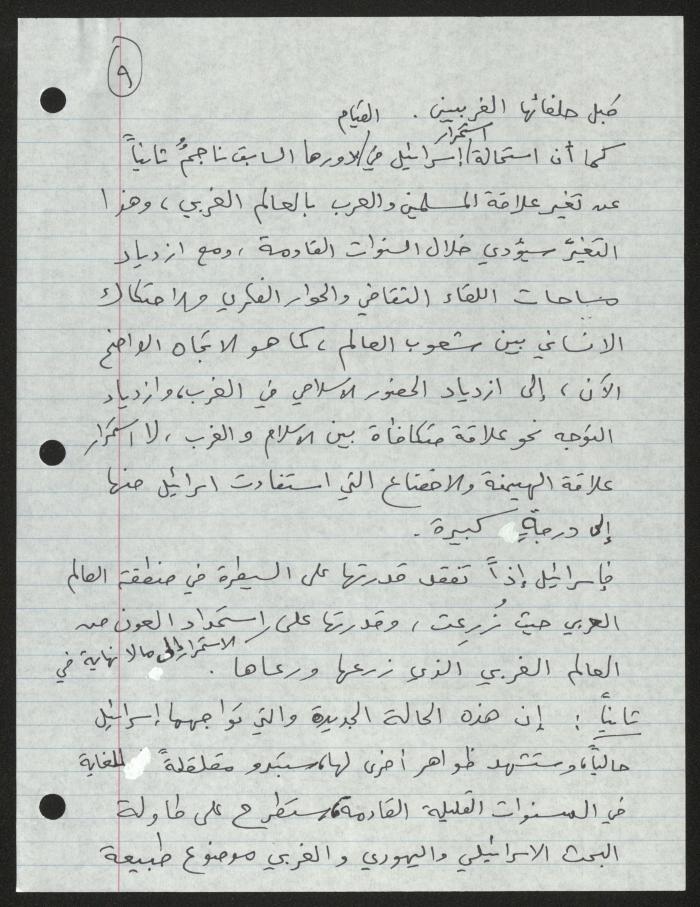 ٩
قبل حلفائها الغربيين . القيام
كما أن استحالة / استمرار إسرائيل في / لدورها السابق ناجمٌ ثانياً
عن تغير علاقة المسلمين والعرب بالعالم الغربي ، وهذا
التغيّر سيؤدي خلال السنوات القادمة ، ومع ازدياد
مساحات اللقاء الثقافي والحوار الفكري والاحتكاك
الانساني بين شعوب العالم ، كما هو الاتجاه الواضح
الآن ، إلى ازدياد الحضور الاسلامي في الغرب ، وازدياد
التوجه نحو علاقة متكافأة بين الاسلام والغرب ، لا استمرار
علاقة الهيمنة والاخضاع التي استفادت اسرائيل منها
إلى درجةٍ كبيرة .
فإسرائيل إذاً تفقد قدرتها على السيطرة في منطقة العالم
العربي حيث زُرعت ، وقدرتها على / استمداد العون من
الاستمرار إلى مالا نهاية في
العالم الغربي الذي زرعها ورعاها .
ثانياً : إن هذه الحالة الجديدة والتي تواجهها إسرائيل
حالياً ، وستشهد ظواهر أخرى لها ، ستبدو مقلقلةً للغاية
في السنوات القليلة القادمة ، ستطرح على طاولة
البحث الاسرائيلي واليهودي والغربي موضوع طبيعة